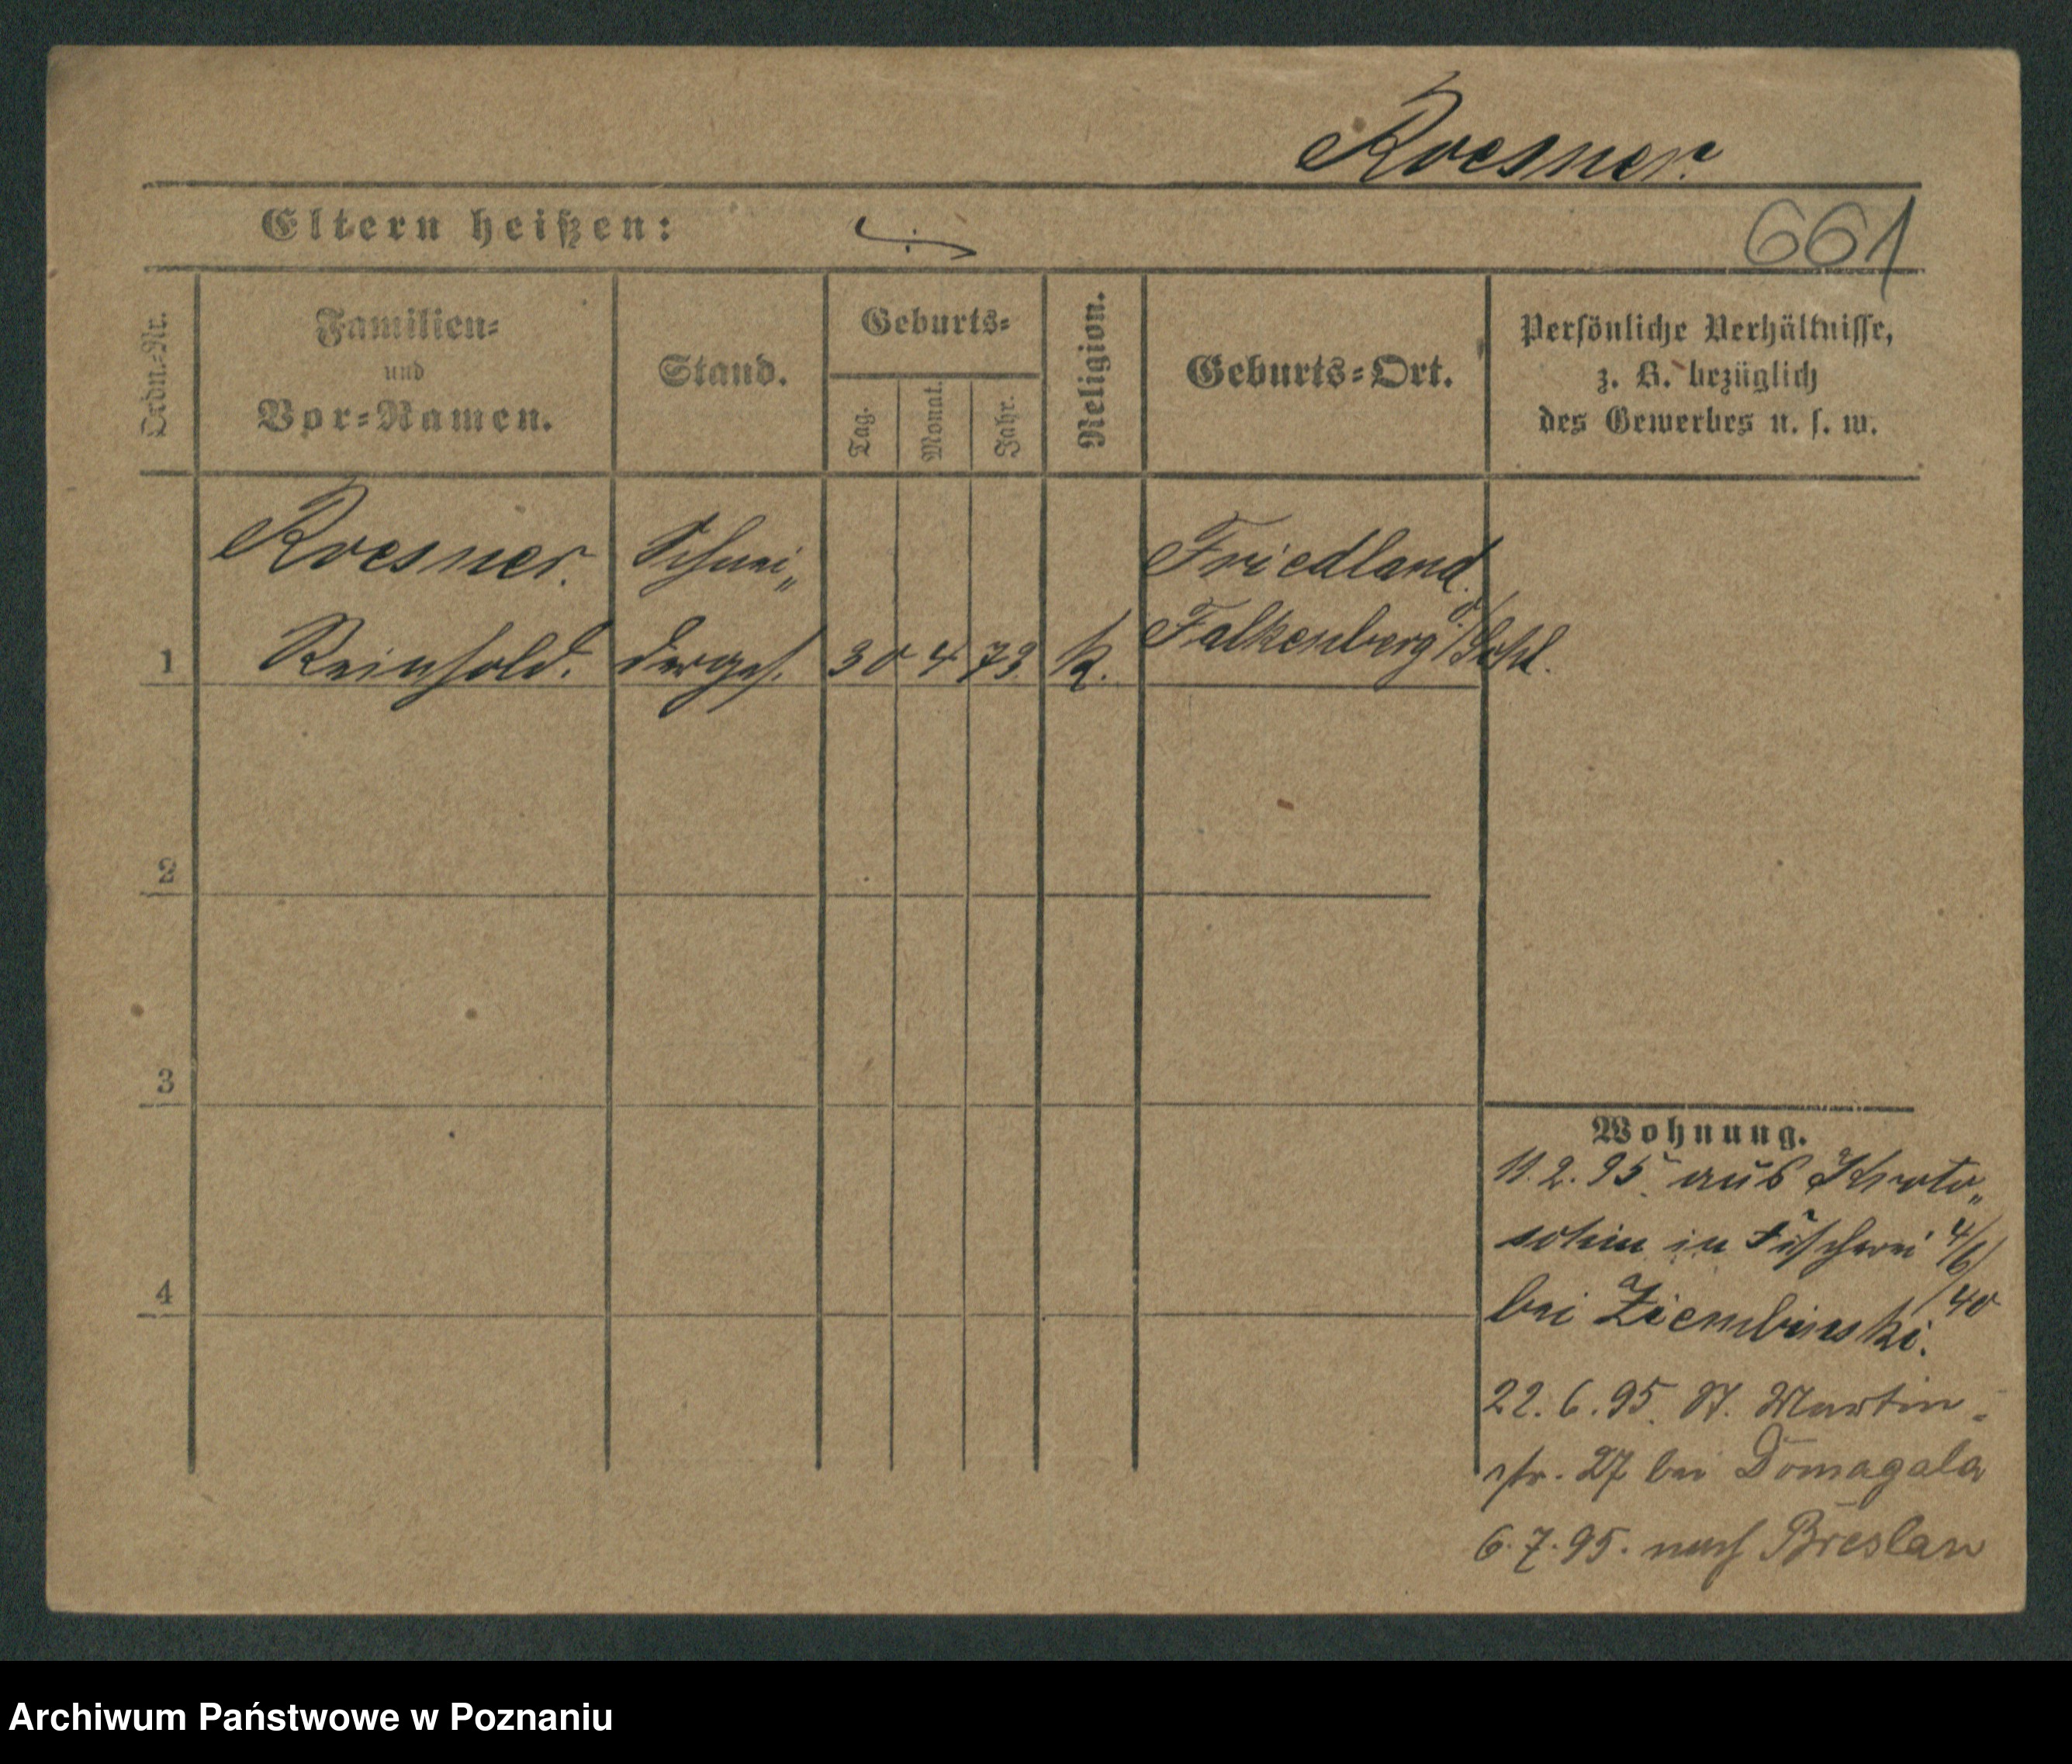 Roesner.
Eltern heißen:
661
Ordn.-Nr.
Familien-
und
Vor-Namen.
Stand.
Geburts-
Tag.
Monat.
Jahr.
Religion.
Geburts-Ort.
Persönliche Verhältnisse,
z. B. bezüglich
des Gewerbes u. s. w.
Roesner. Schnei„ Friedland
1 Reinhold. derges. 30 4 73 k. Falkenberg O/Schl.
2
3
4
Wohnung.
11.2.95. aus Kroto„
schin in Fischerei 4/6
bei Ziembinski. /40
22.6.95. St. Martin-
str. 27 bei Domagala
6.7.95. nach Breslau
Archiwum Państwowe w Poznaniu